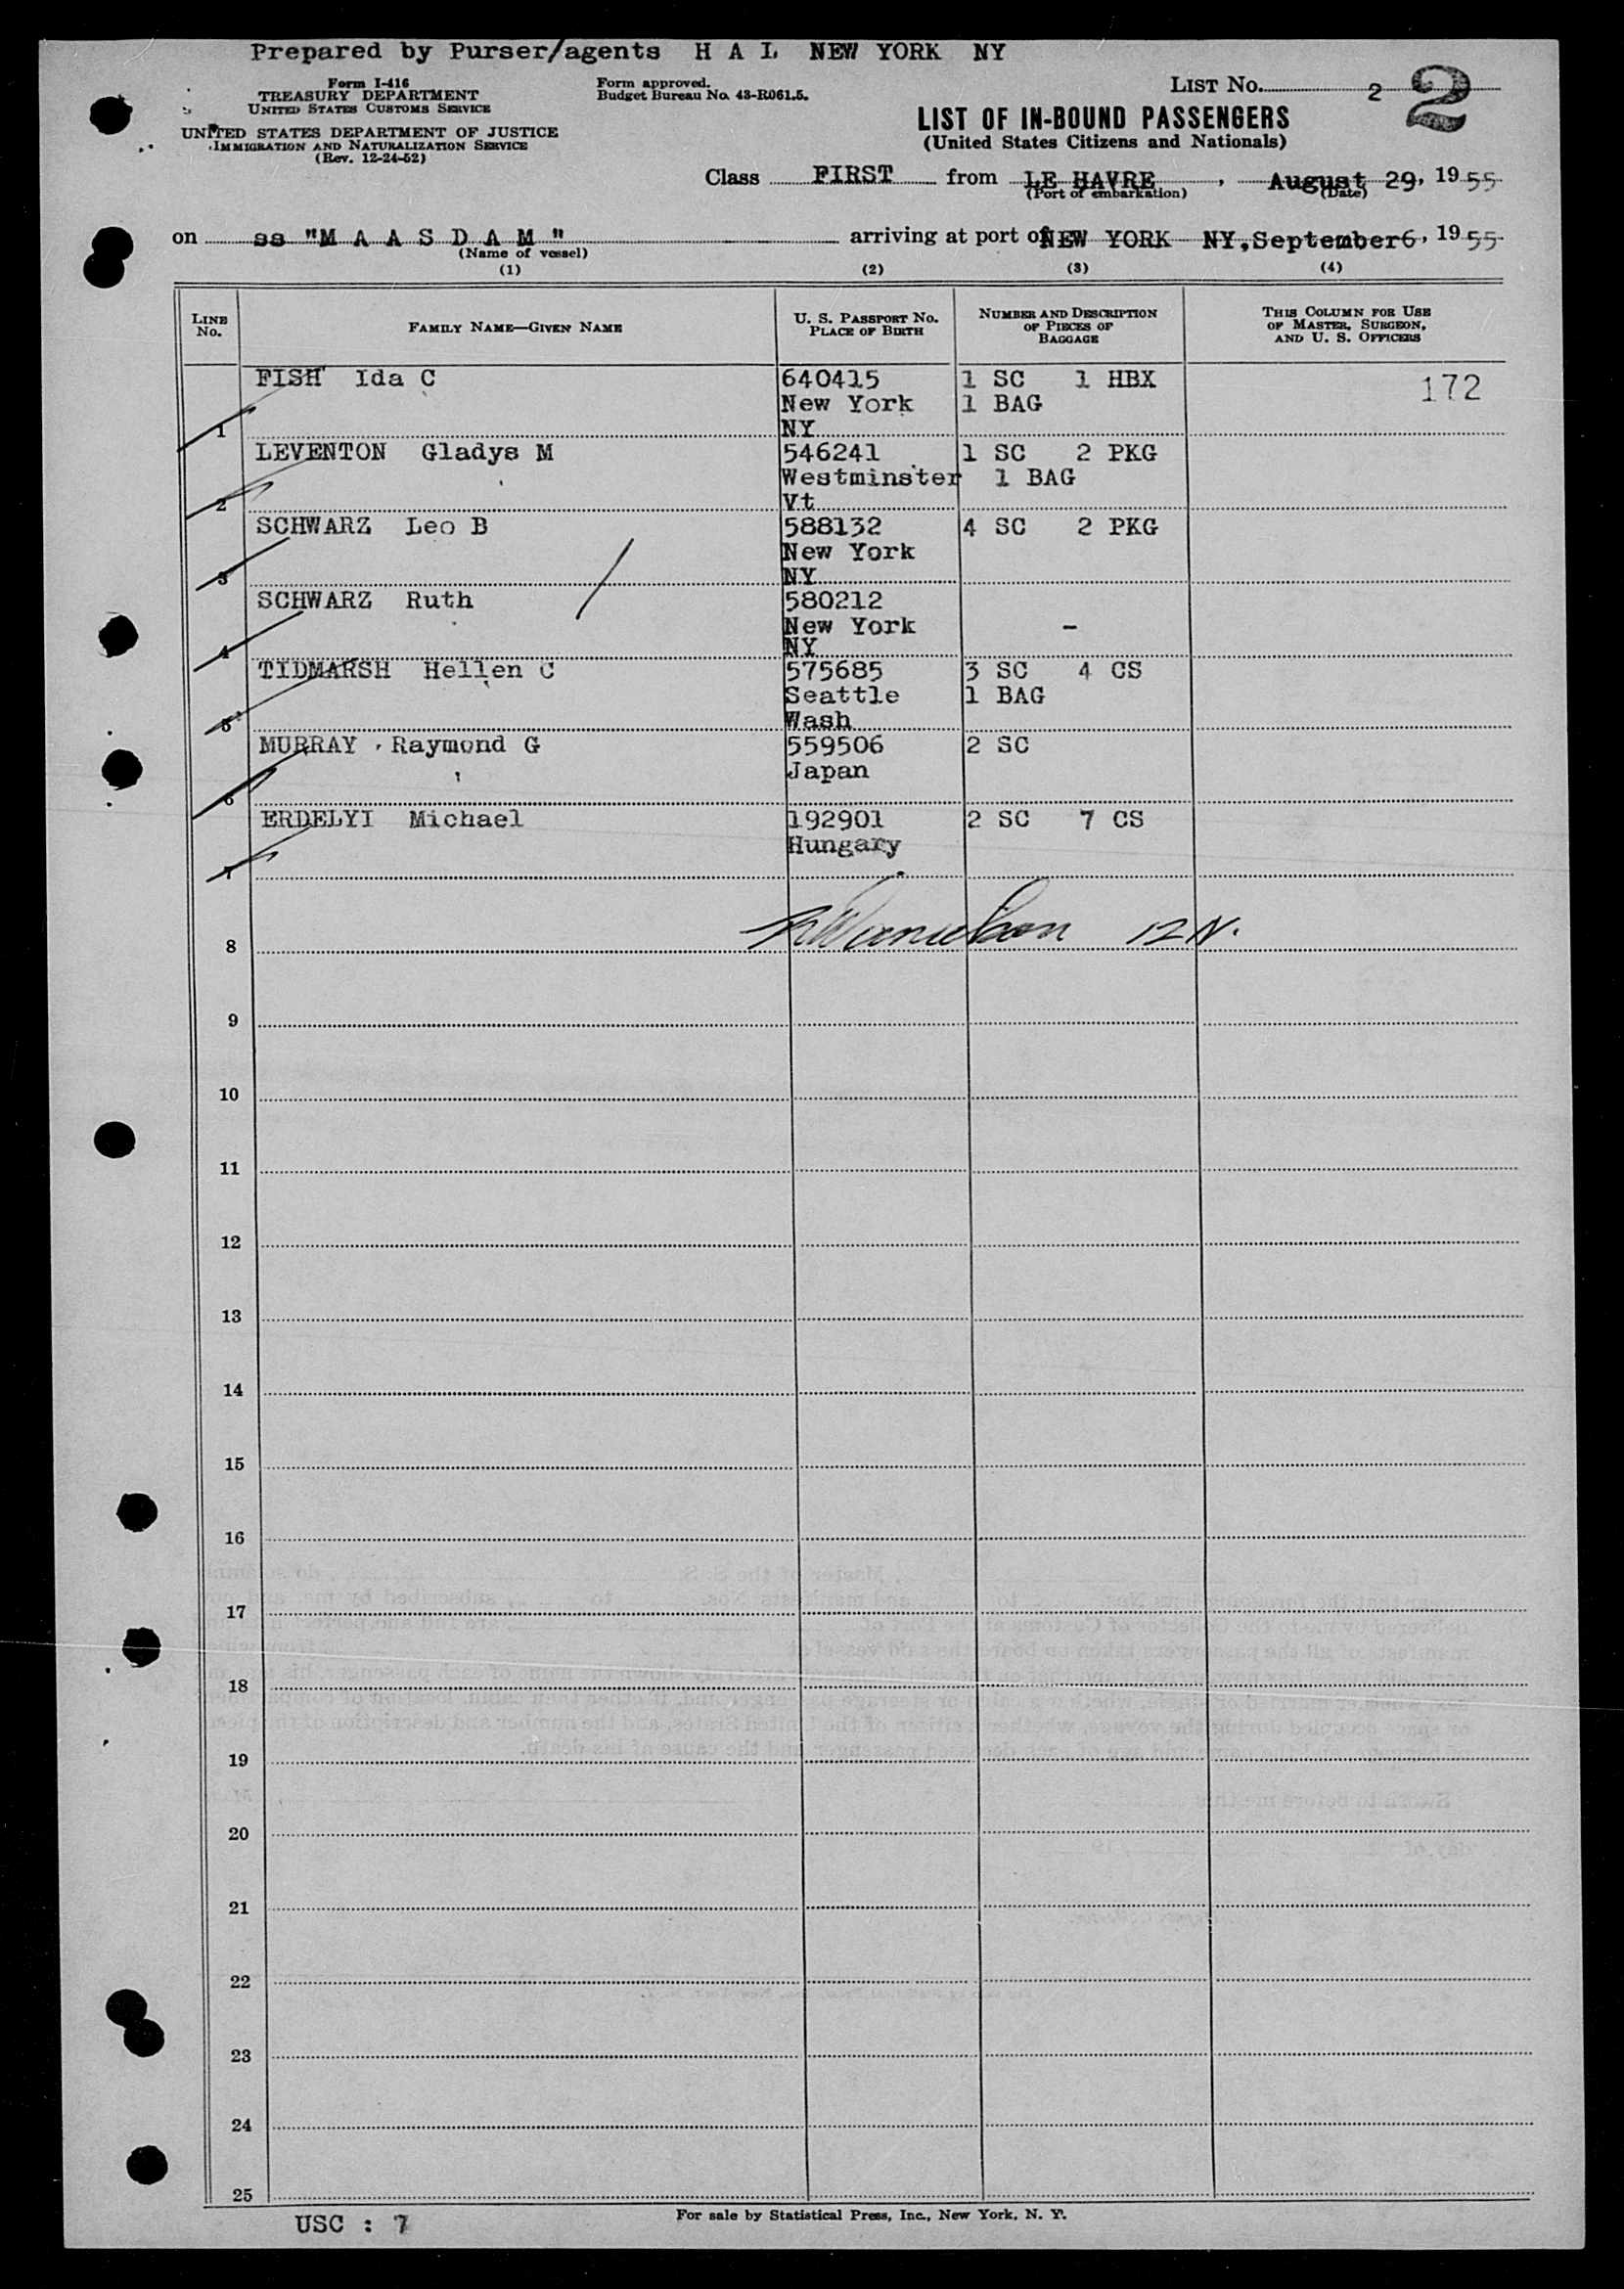 Prepared by Purser/agents H A L NEW YORK NY
Form I-416
TREASURY DEPARTMENT
UNITED STATES CUSTOMS SERVICE
UNITED STATES DEPARTMENT OF JUSTICE
IMMIGRATION AND NATURALIZATION SERVICE
(Rev. 12-24-52)
Form approved.
Budget Bureau No. 43-R061.5.
LIST No. 2
2
LIST OF IN-BOUND PASSENGERS
(United States Citizens and Nationals)
Class FIRST from LE HAVRE, August 29, 1955
(Port of embarkation) (Date)
on ss "M A A S D A M" arriving at port of NEW YORK NY, September 6, 1955
(Name of vessel)
(1) (2) (3) (4)
LINE No.
FAMILY NAME—GIVEN NAME
U. S. PASSPORT NO.
PLACE OF BIRTH
NUMBER AND DESCRIPTION
OF PIECES OF
BAGGAGE
THIS COLUMN FOR USE
OF MASTER, SURGEON,
AND U. S. OFFICERS
FISH Ida C 640415 1 SC 1 HBX 172
New York 1 BAG
1 NY
LEVENTON Gladys M 546241 1 SC 2 PKG
Westminster 1 BAG
2 Vt
SCHWARZ Leo B 588132 4 SC 2 PKG
New York
3 NY
SCHWARZ Ruth 580212
New York -
4 NY
TIDMARSH Hellen C 575685 3 SC 4 CS
Seattle 1 BAG
5 Wash
MURRAY Raymond G 559506 2 SC
Japan
6
ERDELYI Michael 192901 2 SC 7 CS
Hungary
7
12 N.
8
9
10
11
12
13
14
15
16
17
18
19
20
21
22
23
24
25
USC : 7
For sale by Statistical Press, Inc., New York, N. Y.